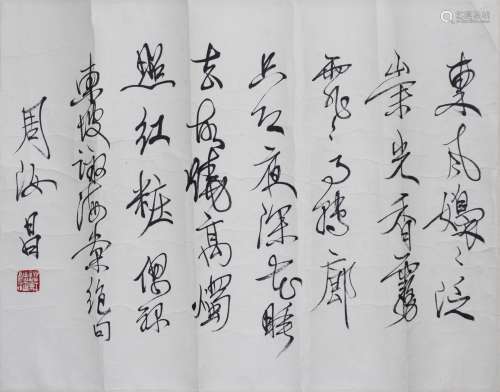 東風嫋〻泛
崇光香霧
霏〻月轉廊
只恐夜深花睡
去故燒高燭
照紅粧 偶録
東坡詠海棠絕句
周汝昌